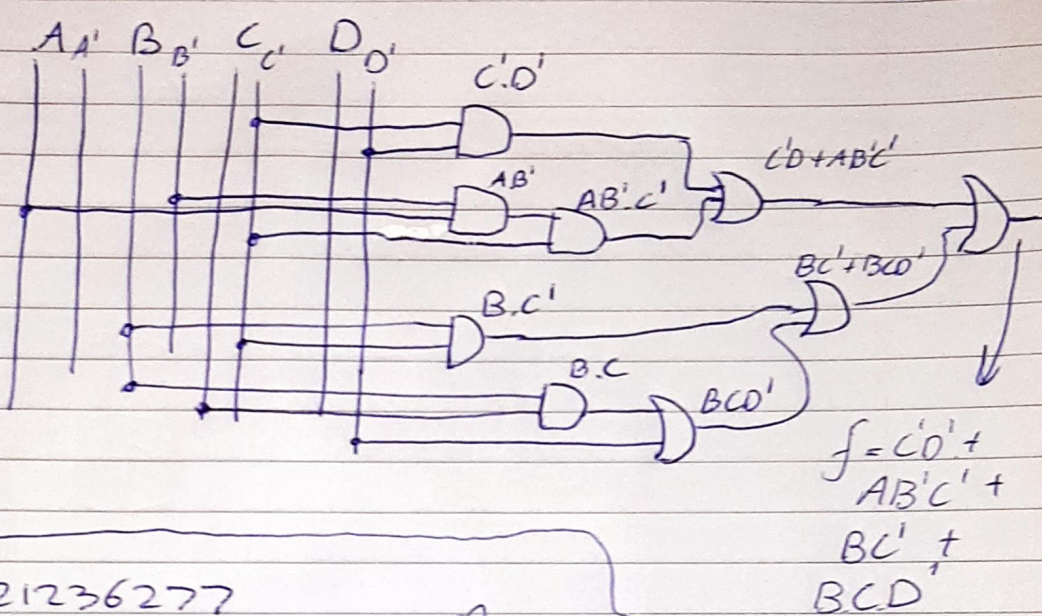 A A' B B' C C' D D'
C'.D'
C'D+AB'C'
AB'
AB'.C'
BC'+BCD'
B.C'
B.C
BCD'
f=C'D'+
AB'C'+
BC' +
BCD'
21236277